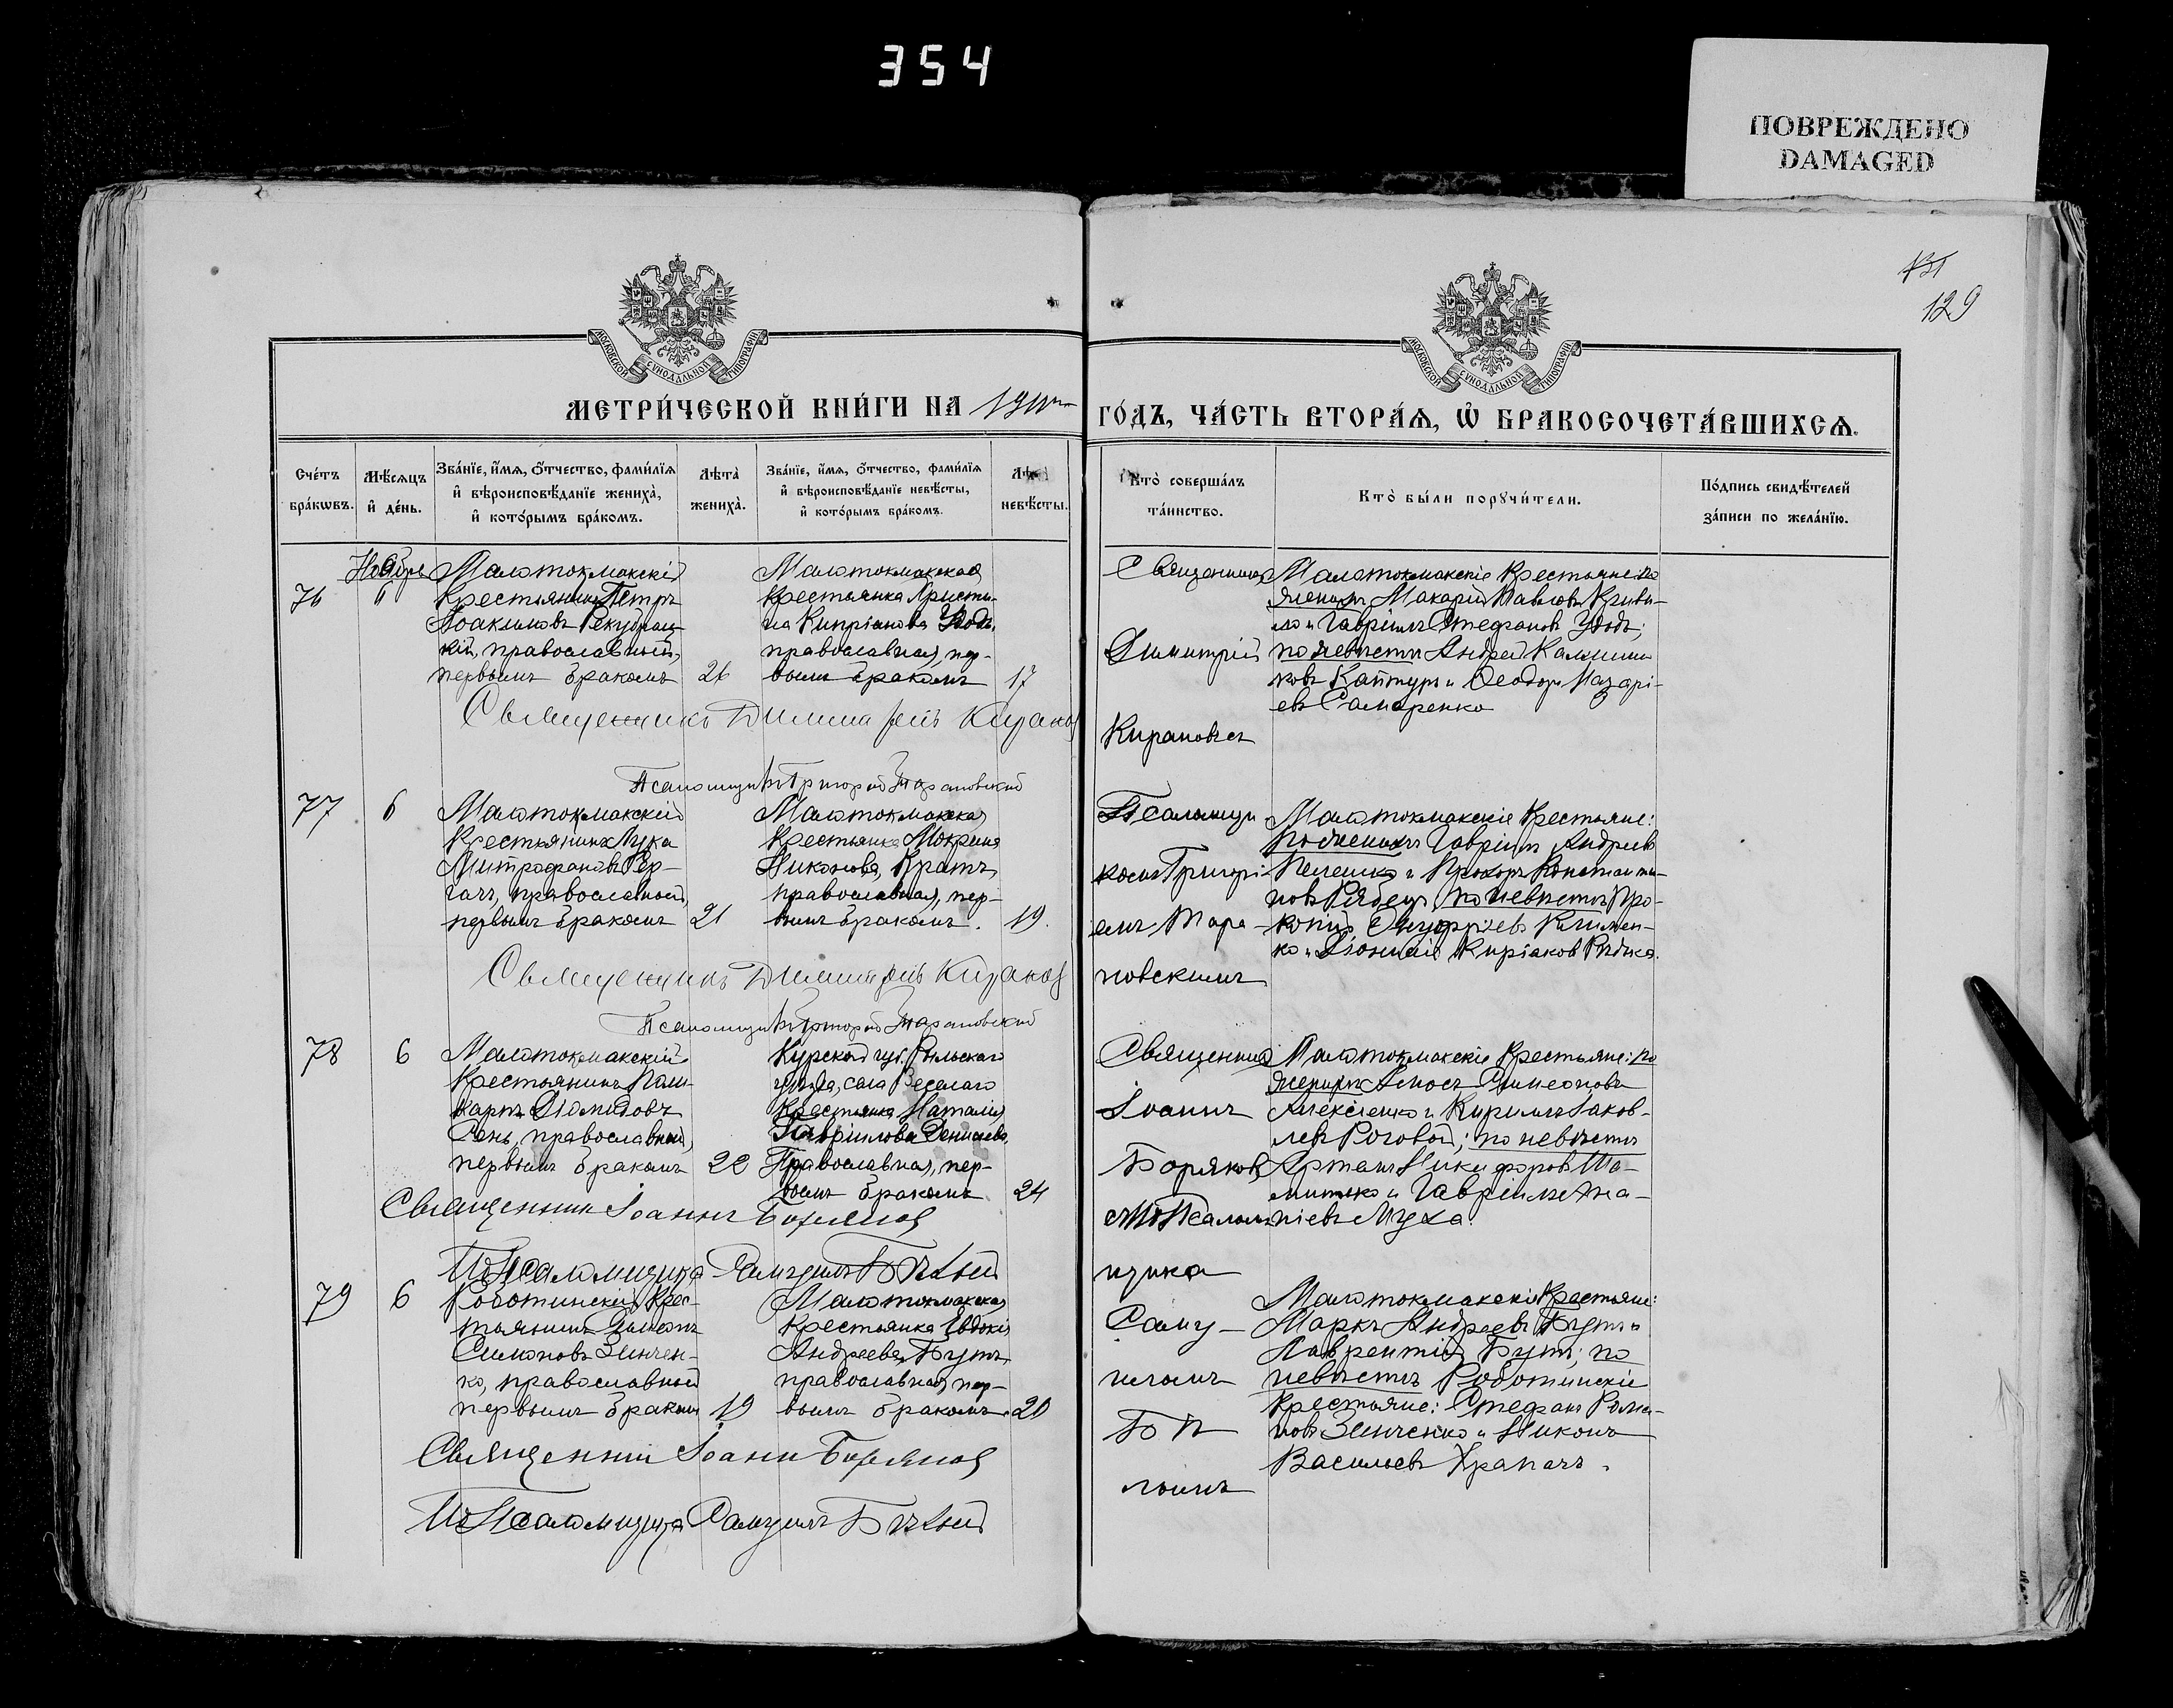 354
ПОВРЕЖДЕНО
DAMAGED
129
МОСКОВСКОЙ СУНОДАЛЬНОЙ ТИПОГРАФІИ
МОСКОВСКОЙ СУНОДАЛЬНОЙ ТИПОГРАФІИ
МЕТРИ́ЧЕСКОЙ КНИ́ГИ НА
ГО́ДЪ, ЧА́СТЬ ВТОРА́Я, Ѡ҆ БРАКОСОЧЕТА́ВШИХСЯ.
Сче́тъ бра́кѡвъ.
Мѣ́сяцъ и҆ де́нь.
Зва́нїе, и҆́мя, ѻ҆́тчество, фами́лїя
и҆ вѣроисповѣ́данїе жениха̀,
и҆ кото́рымъ бра́комъ.
Лѣ́та̀ жениха̀.
Зва́нїе, и҆́мя, ѻ҆́тчество, фами́лїя
и҆ вѣроисповѣ́данїе невѣ́сты,
и҆ кото́рымъ бра́комъ.
невѣ́сты.
Кто̀ соверша́лъ
та́инство.
Кто̀ бы́ли порꙋчи́тели.
По́дпись свидѣ́телей
за́писи по жела́нїю.
76
Малотокмакскій
Крестьянинъ Петръ
Іоакимовъ
кій, православный,
первымъ бракомъ
26
Малотокмакская
Крестьянка Христи-
на Кипріанова
православная, пер-
вымъ бракомъ
17
Священникъ
Димитрій
Кирановъ
Малотокмакскіе Крестьяне: по
женихѣ Макарій Павловъ
и Гавріилъ Стефановъ Удодъ;
по невѣстѣ Андрей
и Ѳеодоръ Назарі-
евъ Самаренко
Священникъ Димитрій Кирановъ
Псаломщикъ Григорій Тарановскій
77
6
Малотокмакскій
Крестьянинъ Лука
Митрофановъ Дер-
гачъ, православный,
первымъ бракомъ
21
Малотокмакская
Крестьянка Мокрина
Никонова Кратъ,
православная, пер-
вымъ бракомъ.
19.
Псаломщи-
комъ Григорі-
емъ Тара-
новскимъ
Малотокмакскіе Крестьяне:
по женихѣ Гавріилъ Андреевъ
и Прохоръ Константи-
новъ Рябецъ, по невѣстѣ Про-
копій Онуфріевъ Климен-
ко и Діонисій Киріаковъ Рѣдька.
Священникъ Димитрій Кирановъ
Псаломщикъ Григорій Тарановскій
78
6
Малотокмакскій
Крестьянинъ Поли-
карпъ Діомидовъ
православный,
первымъ бракомъ
22
Курской губ. Рыльскаго
уѣзда, села Веселаго
Крестьянка Наталія
Гавріилова Денисова,
Православная, пер-
вымъ бракомъ
24
Священникъ
Іоаннъ
Боряковъ
Псалом-
щика
Саму-
иломъ
Бѣ
лымъ
Малотокмакскіе Крестьяне: по
женихѣ Амосъ Симеоновъ
Алексѣенко и Кириллъ Іаков-
левъ Роговой; по невѣстѣ
Артемъ Никифоровъ
и Гавріилъ Ана-
ніевъ Муха.
Священникъ Іоаннъ Боряковъ
Псаломщика Самуилъ Бѣлый
79
6
Роботинскій Крес-
тьянинъ
Симоновъ Зинчен-
ко, православный
первымъ бракомъ
19
Малотокмакская
Крестьянка Евдокія
Андреева Бутъ,
православная, пер-
вымъ бракомъ.
20
Малотокмакскіе Крестьяне:
Маркъ Андреевъ Бутъ и
Лаврентій Бутъ; по
невѣстѣ Роботинскіе
Крестьяне: Стефанъ Рома-
новъ Зинченко и Никонъ
Васильевъ Храпачъ.
Священникъ Іоаннъ Боряковъ
Псаломщика Самуилъ Бѣлый